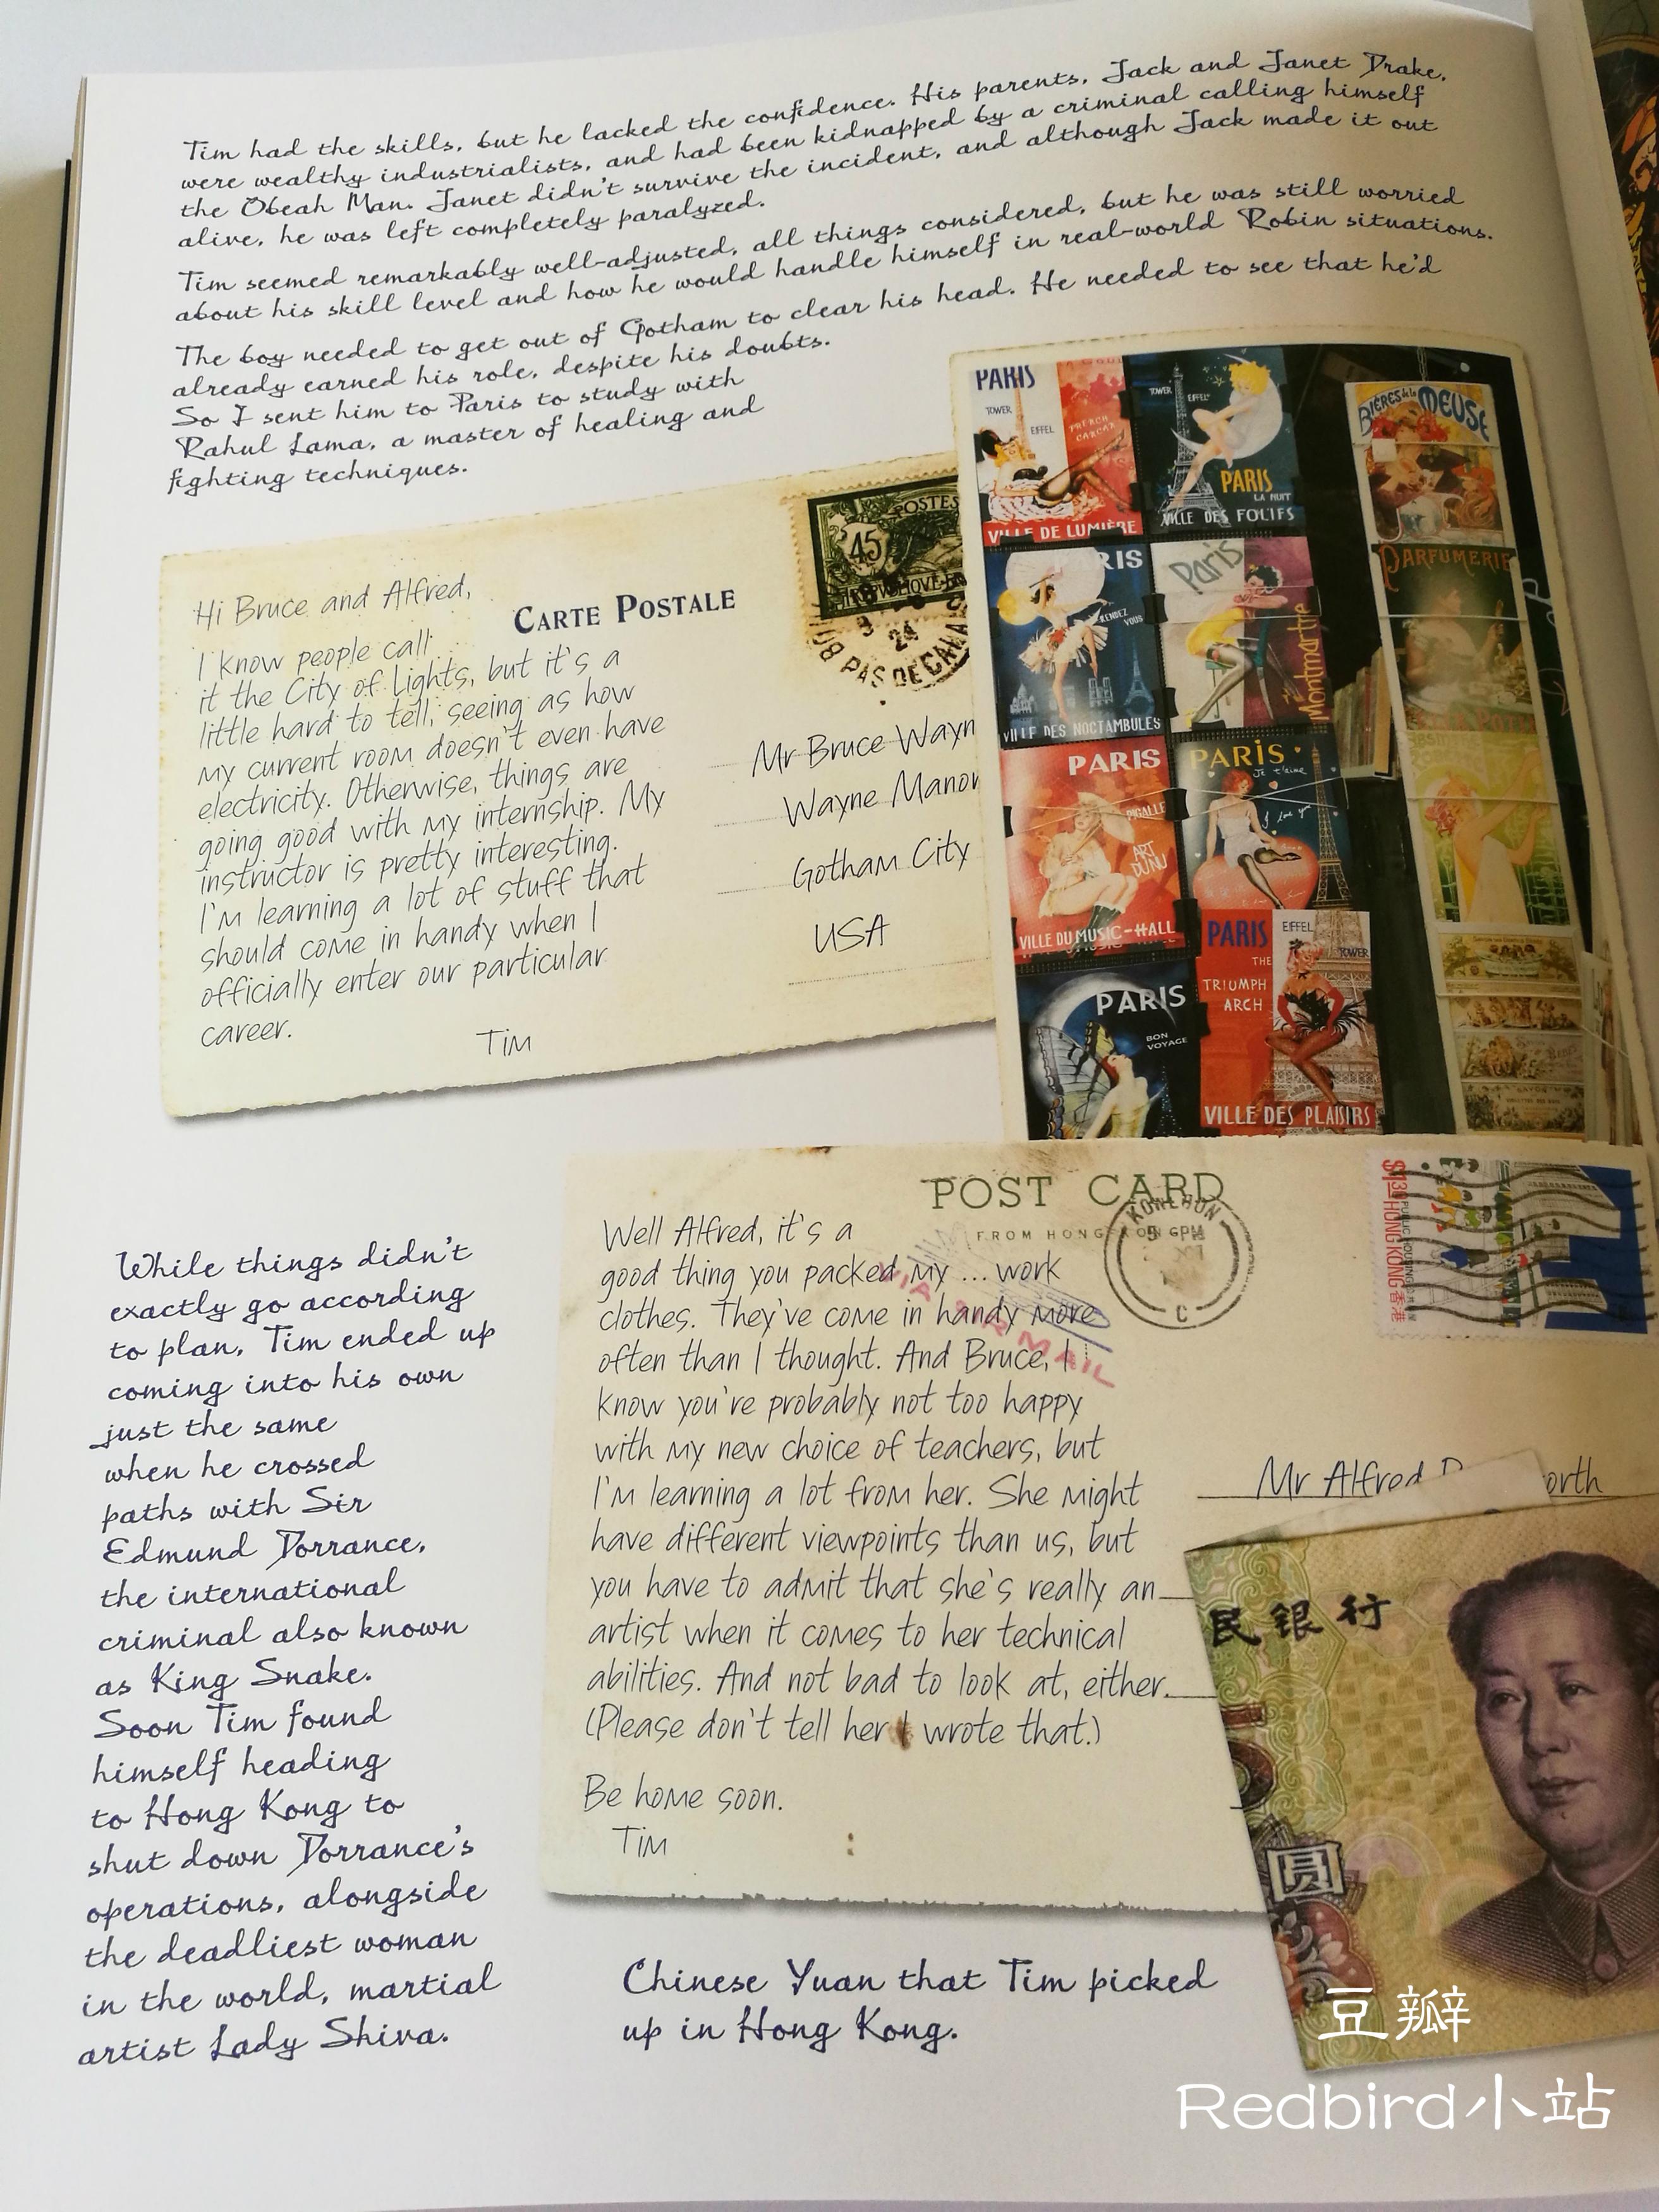 Tim had the skills, but he lacked the confidence. His parents, Jack and Janet Drake,
were wealthy industrialists, and had been kidnapped by a criminal calling himself
the Obeah Man. Janet didn't survive the incident, and although Jack made it out
alive, he was left completely paralyzed.
Tim seemed remarkably well-adjusted, all things considered, but he was still worried
about his skill level and how he would handle himself in real-world Robin situations.
The boy needed to get out of Gotham to clear his head. He needed to see that he'd
already earned his role, despite his doubts.
So I sent him to Paris to study with
Rahul Lama, a master of healing and
fighting techniques.
Hi Bruce and Alfred,
CARTE POSTALE
I know people call
it the City of Lights, but it's a
little hard to tell, seeing as how
my current room doesn't even have
electricity. Otherwise, things are
going good with my internship. My
instructor is pretty interesting.
I'm learning a lot of stuff that
should come in handy when I
officially enter our particular
career.
Tim
POSTES
45
24
PAS DE CALAIS
Mr Bruce Wayn
Wayne Manor
Gotham City
USA
PARIS
TOWER
EIFFEL
FRENCH
CANCAN
VILLE DE LUMIÈRE
TOWER
EIFFEL
PARIS
LA NUIT
VILLE DES FOLIES
BIÈRES de la MEUSE
RIS
RENDEZ
VOUS
VILLE DES NOCTAMBULES
Paris
Montmartre
PARFUMERIE
PARIS
PIGALLE
ART
DU NU
VILLE DU MUSIC-HALL
PARIS
Je t'aime
I love you
PARIS
BON
VOYAGE
PARIS
EIFFEL
TOWER
THE
TRIUMPH
ARCH
VILLE DES PLAISIRS
POST CARD
FROM HONG KONG
KOWLOON
6PM
C
VIA AIR MAIL
$1.30
HONG KONG 香港
PUBLIC HOUSING
Well Alfred, it's a
good thing you packed my ... work
clothes. They've come in handy more
often than I thought. And Bruce, I
know you're probably not too happy
with my new choice of teachers, but
I'm learning a lot from her. She might
have different viewpoints than us, but
you have to admit that she's really an
artist when it comes to her technical
abilities. And not bad to look at, either.
(Please don't tell her I wrote that.)
Be home soon.
Tim
Mr Alfred P orth
民银行
圆
While things didn't
exactly go according
to plan, Tim ended up
coming into his own
just the same
when he crossed
paths with Sir
Edmund Dorrance,
the international
criminal also known
as King Snake.
Soon Tim found
himself heading
to Hong Kong to
shut down Dorrance's
operations, alongside
the deadliest woman
in the world, martial
artist Lady Shiva.
Chinese Yuan that Tim picked
up in Hong Kong.
豆瓣
Redbird小站